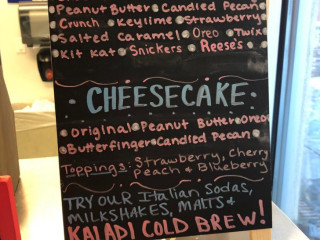 Peanut Butter Candied Pecan
Crunch Keylime Strawberry
Salted Caramel Oreo Twix
Kit Kat Snickers Reese's
CHEESECAKE
Original Peanut Butter Oreo
Butterfinger Candied Pecan
Toppings: Strawberry, Cherry
Peach & Blueberry
TRY OUR Italian Sodas,
MILKSHAKES, MALTS &
KALADI COLD BREW!